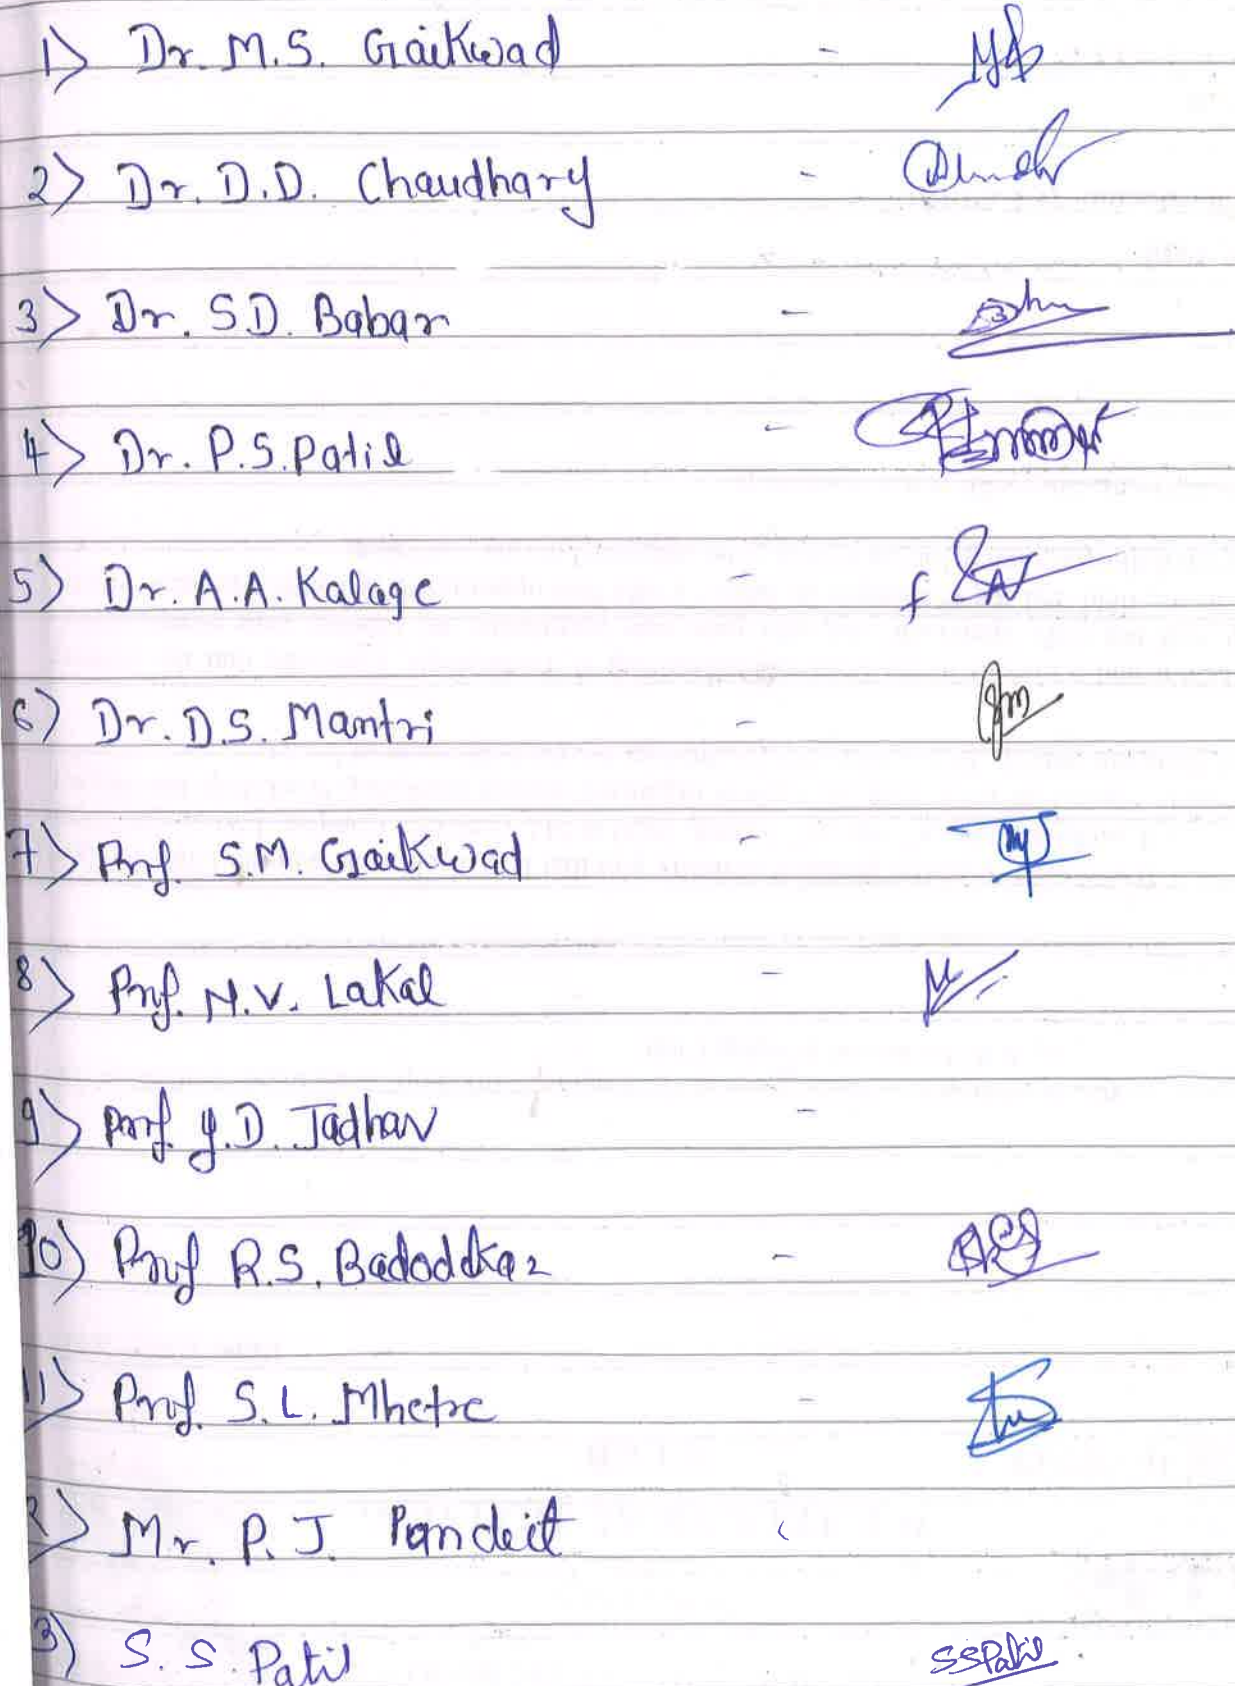 1> Dr. M.S. Gaikwad -
2> Dr. D.D. Chaudhary -
3> Dr. S.D. Babar -
4> Dr. P.S. Patil -
5> Dr. A.A. Kalage -
6> Dr. D.S. Mantri -
7> Prof. S.M. Gaikwad -
8> Prof. N.V. Lakal -
9> Prof. Y.D. Jadhav -
10> Prof R.S. Badodekar -
11> Prof. S.L. Mhetre -
2> Mr. P.J. Pandeit
3) S. S. Patil SSPatil.